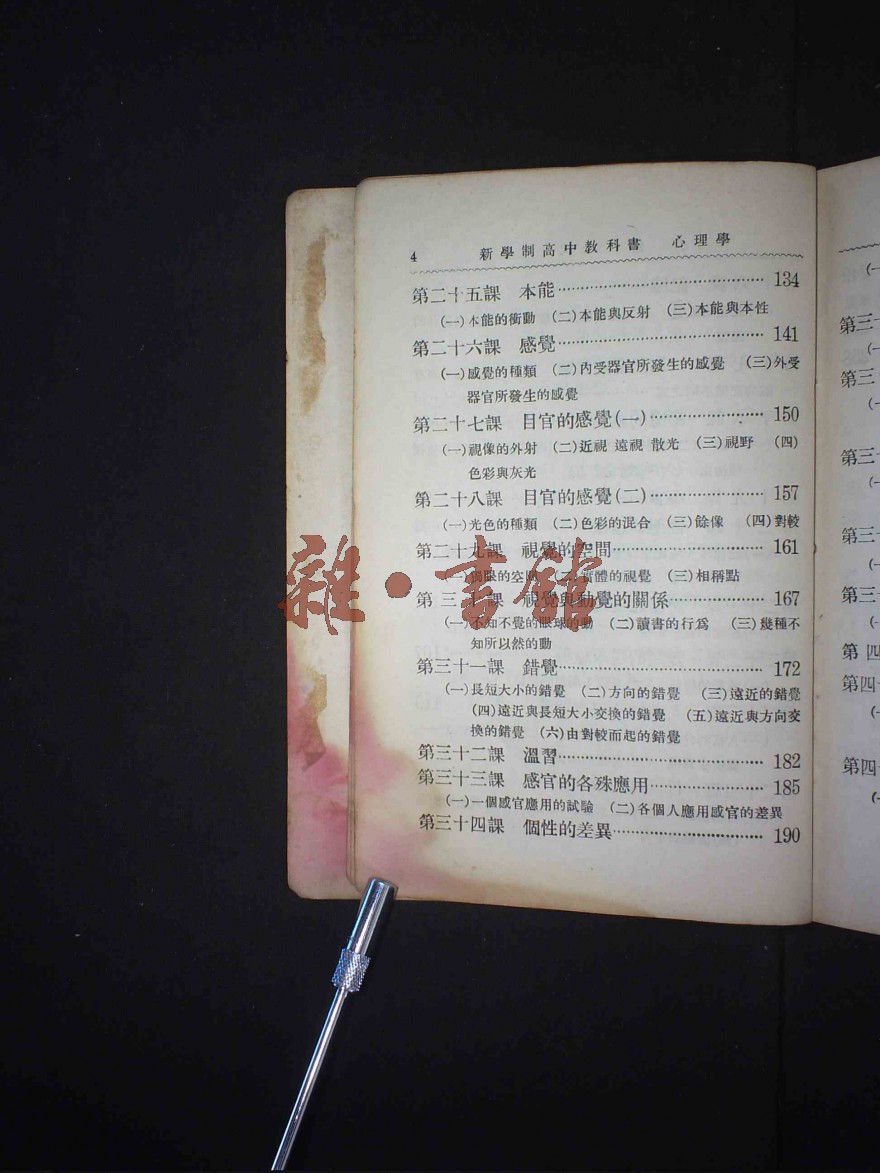 4 新學制高中教科書 心理學
第二十五課 本能 134
(一)本能的衝動 (二)本能與反射 (三)本能與本性
第二十六課 感覺 141
(一)感覺的種類 (二)內受器官所發生的感覺 (三)外受
器官所發生的感覺
第二十七課 目官的感覺(一) 150
(一)視像的外射 (二)近視 遠視 散光 (三)視野 (四)
色彩與灰光
第二十八課 目官的感覺(二) 157
(一)光色的種類 (二)色彩的混合 (三)餘像 (四)對較
第二十九課 視覺的空間 161
的空 (二)實體的視覺 (三)相稱點
第三十課 視覺與動覺的關係 167
(一)不知不覺的眼球的動 (二)讀書的行爲 (三)幾種不
知所以然的動
第三十一課 錯覺 172
(一)長短大小的錯覺 (二)方向的錯覺 (三)遠近的錯覺
(四)遠近與長短大小交換的錯覺 (五)遠近與方向交
換的錯覺 (六)由對較而起的錯覺
第三十二課 溫習 182
第三十三課 感官的各殊應用 185
(一)一個感官應用的試驗 (二)各個人應用感官的差異
第三十四課 個性的差異 190
雜·書館
(一
第三十
(一
第三十
(一
第三十
(一
第三十
(一
第三十
(一
第四
第四十
(一
第四十
(一